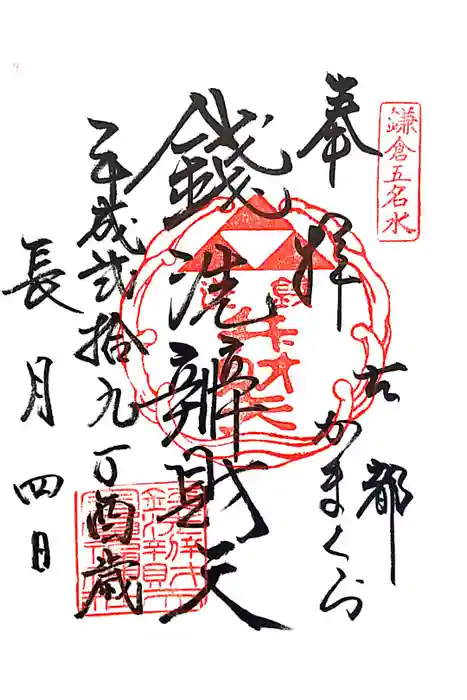 鎌倉五名水
奉拝
古都
かまくら
銭洗辨財天
平成弐拾九丁酉歳
長月四日